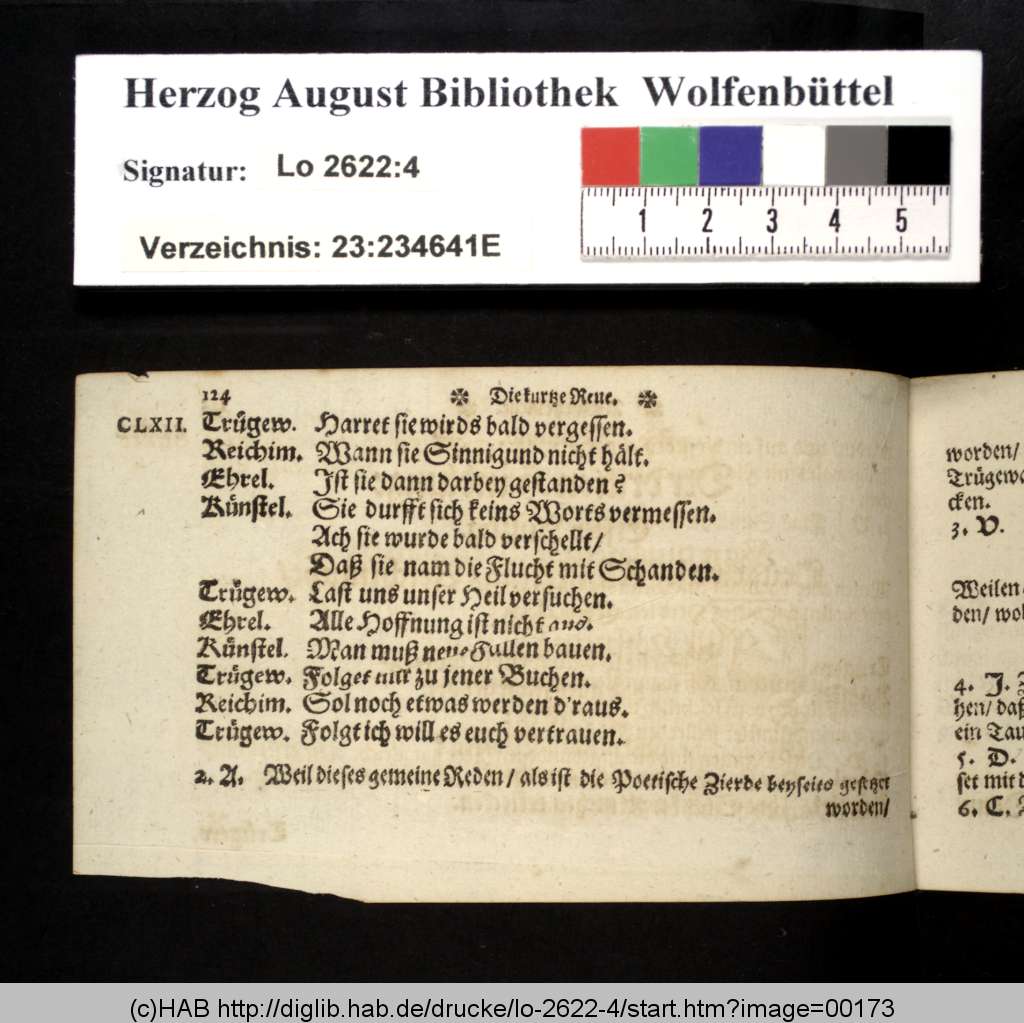 Herzog August Bibliothek Wolfenbüttel
Signatur: Lo 2622:4
Verzeichnis: 23:234641E
1 2 3 4 5
124 Die kurtze Reue.
CLXII. Trügew. Harret sie wirds bald vergessen.
Reichim. Wann sie Sinnigund nicht hält.
Ehrel. Ist sie dann darbey gestanden?
Künstel. Sie durfft sich keins Worts vermessen.
Ach sie wurde bald verschellt/
Daß sie nam die Flucht mit Schanden.
Trügew. Last uns unser Heil versuchen.
Ehrel. Alle Hoffnung ist nicht aus.
Künstel. Man muß neue Fallen bauen.
Trügew. Folget mir zu jener Buchen.
Reichim. Sol noch etwas werden d'raus.
Trügew. Folgt ich will es euch vertrauen.
2. A. Weil dieses gemeine Reden/ als ist die Poetische Zierde beyseits gesetzet
worden/
worden/
Trügew
cken.
3. V.
Weilen
den/ wol
4. J.
hen/ daß
ein Tau
5. D.
set mit d
6. C.
(c)HAB http://diglib.hab.de/drucke/lo-2622-4/start.htm?image=00173